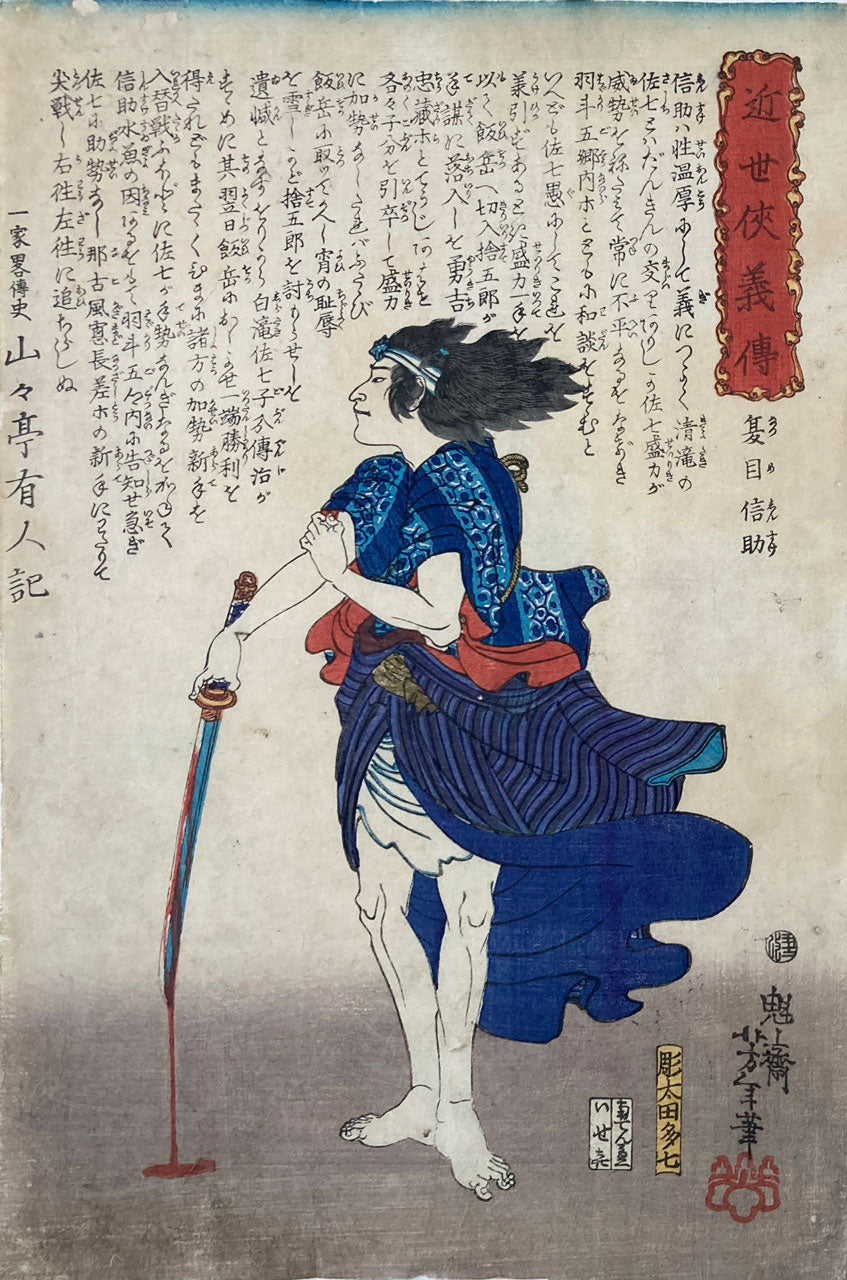 近世侠義傳
夏目信助
信助ハ性温厚にして義につよく清滝の
佐七とハだんきんの交りありしが佐七盛力が
威勢を祢たミて常に不平なるをなげき
羽斗五郷内ホとともに和談をすすむと
いへども佐七愚にしてこれを
兼引ずあるとき盛力一手を
以て飯岳へ切入捨五郎が
手謀に落入し勇吉
忠蔵ホと
各々子分を引卒して盛力
に加勢なしたれバふたたび
飯岳に取つてかへし宵の恥辱
を雪しかど捨五郎を討もらせしを
遺憾となすをりから白滝佐七子分傳治が
すすめに其翌日飯岳におしよせ一端勝利を
得たれどもまたたくひまに諸方の加勢新手を
入替戦ふほどに佐七が手勢なんぎなるを
信助水魚の因あるをもて羽斗五々内に告知せ急ぎ
佐七に助勢なし那古風憲長差ホの新手にわたりて
尖戦し右往左往に追ちらしぬ
一家畧傳史 山々亭有人記
魁斎芳年筆
彫太田多七
いせ喜